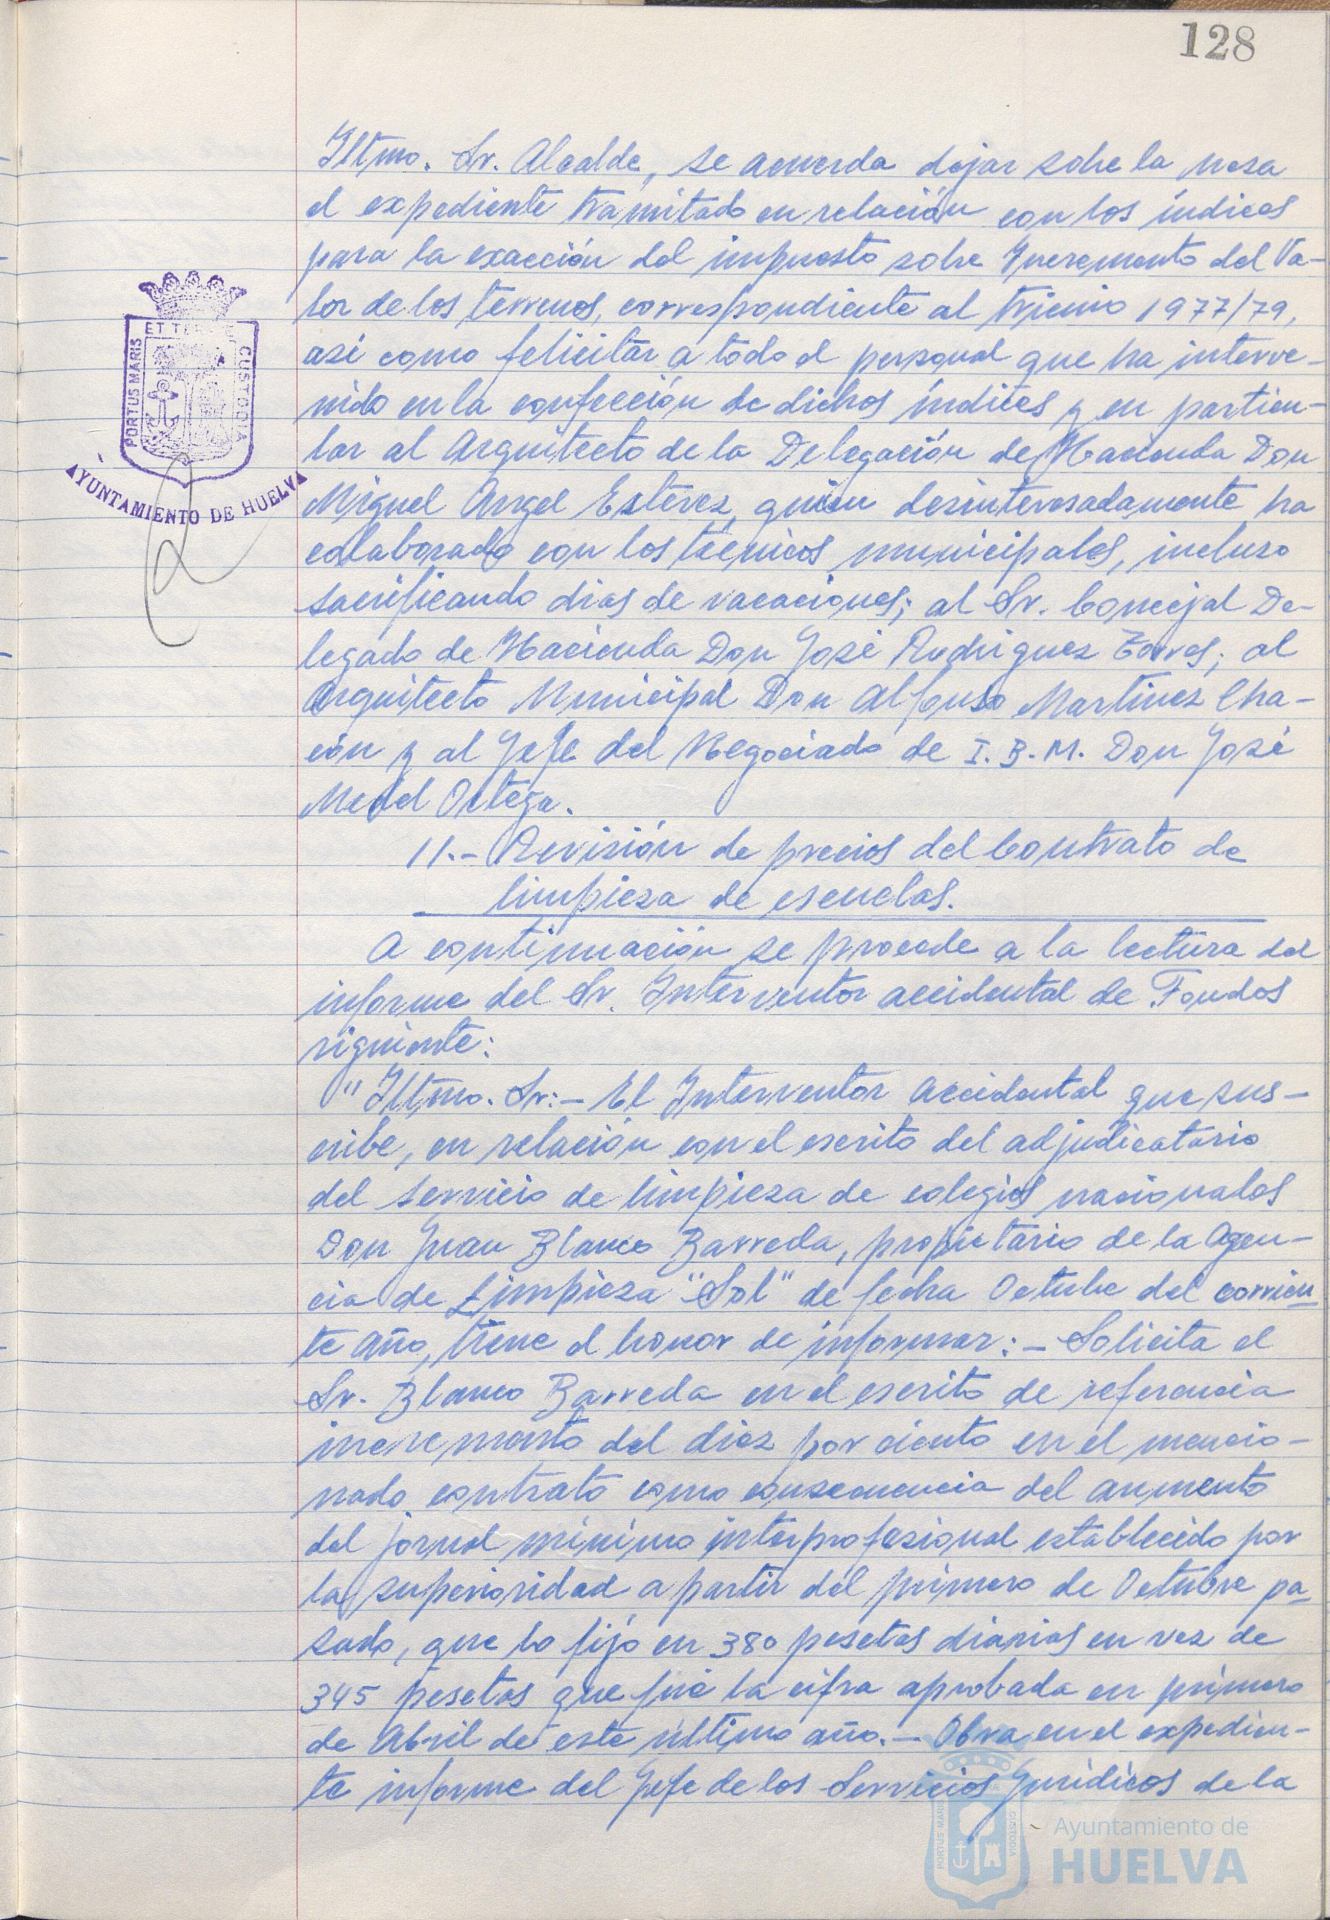 128
Iltmo. Sr. Alcalde, se acuerda dejar sobre la mesa
el expediente tramitado en relación con los índices
para la exacción del impuesto sobre Incremento del Va-
lor de los terrenos, correspondiente al trienio 1977/79,
asi como felicitar a todo el personal que ha interve-
nido en la confección de dichos índices y en particu-
lar al Arquitecto de la Delegación de Hacienda Don
Miguel Angel Estévez, quien desinteresadamente ha
colaborado con los técnicos municipales, incluso
sacrificando dias de vacaciones; al Sr. Concejal De-
legado de Hacienda Don José Rodriguez Torres; al
Arquitecto Municipal Don Alfonso Martinez Cha-
cón y al Jefe del Negociado de I.B.M. Don José
Medel Ortega.
11.- Revisión de precios del Contrato de
limpieza de escuelas.
A continuación se procede a la lectura del
informe del Sr. Interventor accidental de Fondos
siguiente:
"Iltmo. Sr:- El Interventor Accidental que sus-
cribe, en relación con el escrito del adjudicatario
del servicio de limpieza de colegios nacionales
Don Juan Blanco Barreda, propietario de la Agen-
cia de Limpieza "Sol" de fecha Octubre del corrien-
te año, tiene el honor de informar:- Solicita el
Sr. Blanco Barreda en el escrito de referencia
incremento del diez por ciento en el mencio-
nado contrato como consecuencia del aumento
del jornal mínimo interprofesional establecido por
la superioridad a partir del primero de Octubre pa-
sado, que lo fijó en 380 pesetas diarias en vez de
345 pesetas que fué la cifra aprobada en primero
de Abril de este último año.- Obra en el expedien-
te informe del Jefe de los Servicios Jurídicos de la
PORTUS MARIS ET TERRE CUSTODIA
AYUNTAMIENTO DE HUELVA
PORTUS MARIS CUSTODIA
Ayuntamiento de
HUELVA